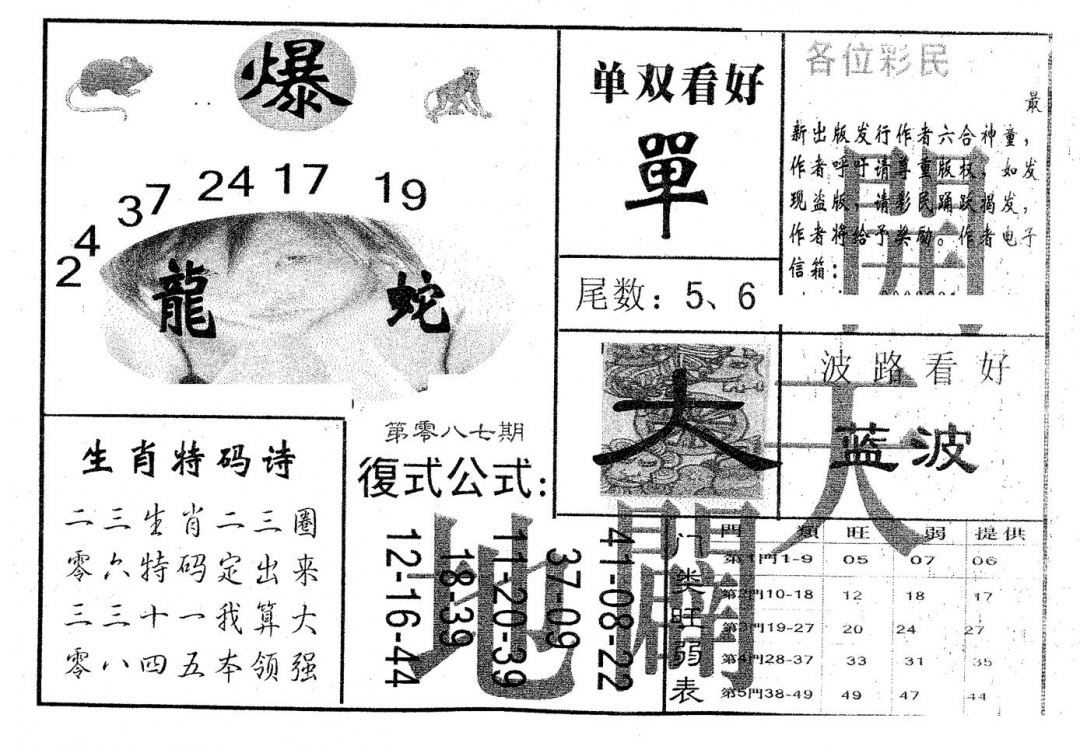 爆
2 4 37 24 17 19
龍 蛇
单双看好
單
尾数：5、6
各位彩民
最
新出版发行作者六合神童，
作者呼吁请尊重版权，如发
现盗版，请彩民踊跃揭发，
作者将给予奖励。作者电子
信箱：
開
天
大
波路看好
蓝波
生肖特码诗
二三生肖二三圈
零六特码定出来
三三十一我算大
零八四五本领强
第零八七期
復式公式：
12-16-44
18-39
11-20-39
37-09
41-08-22
地
闢
门类旺弱表
門 類 旺 弱 提供
第1門1-9 05 07 06
第2門10-18 12 18 17
第3門19-27 20 24 27
第4門28-37 33 31 35
第5門38-49 49 47 44